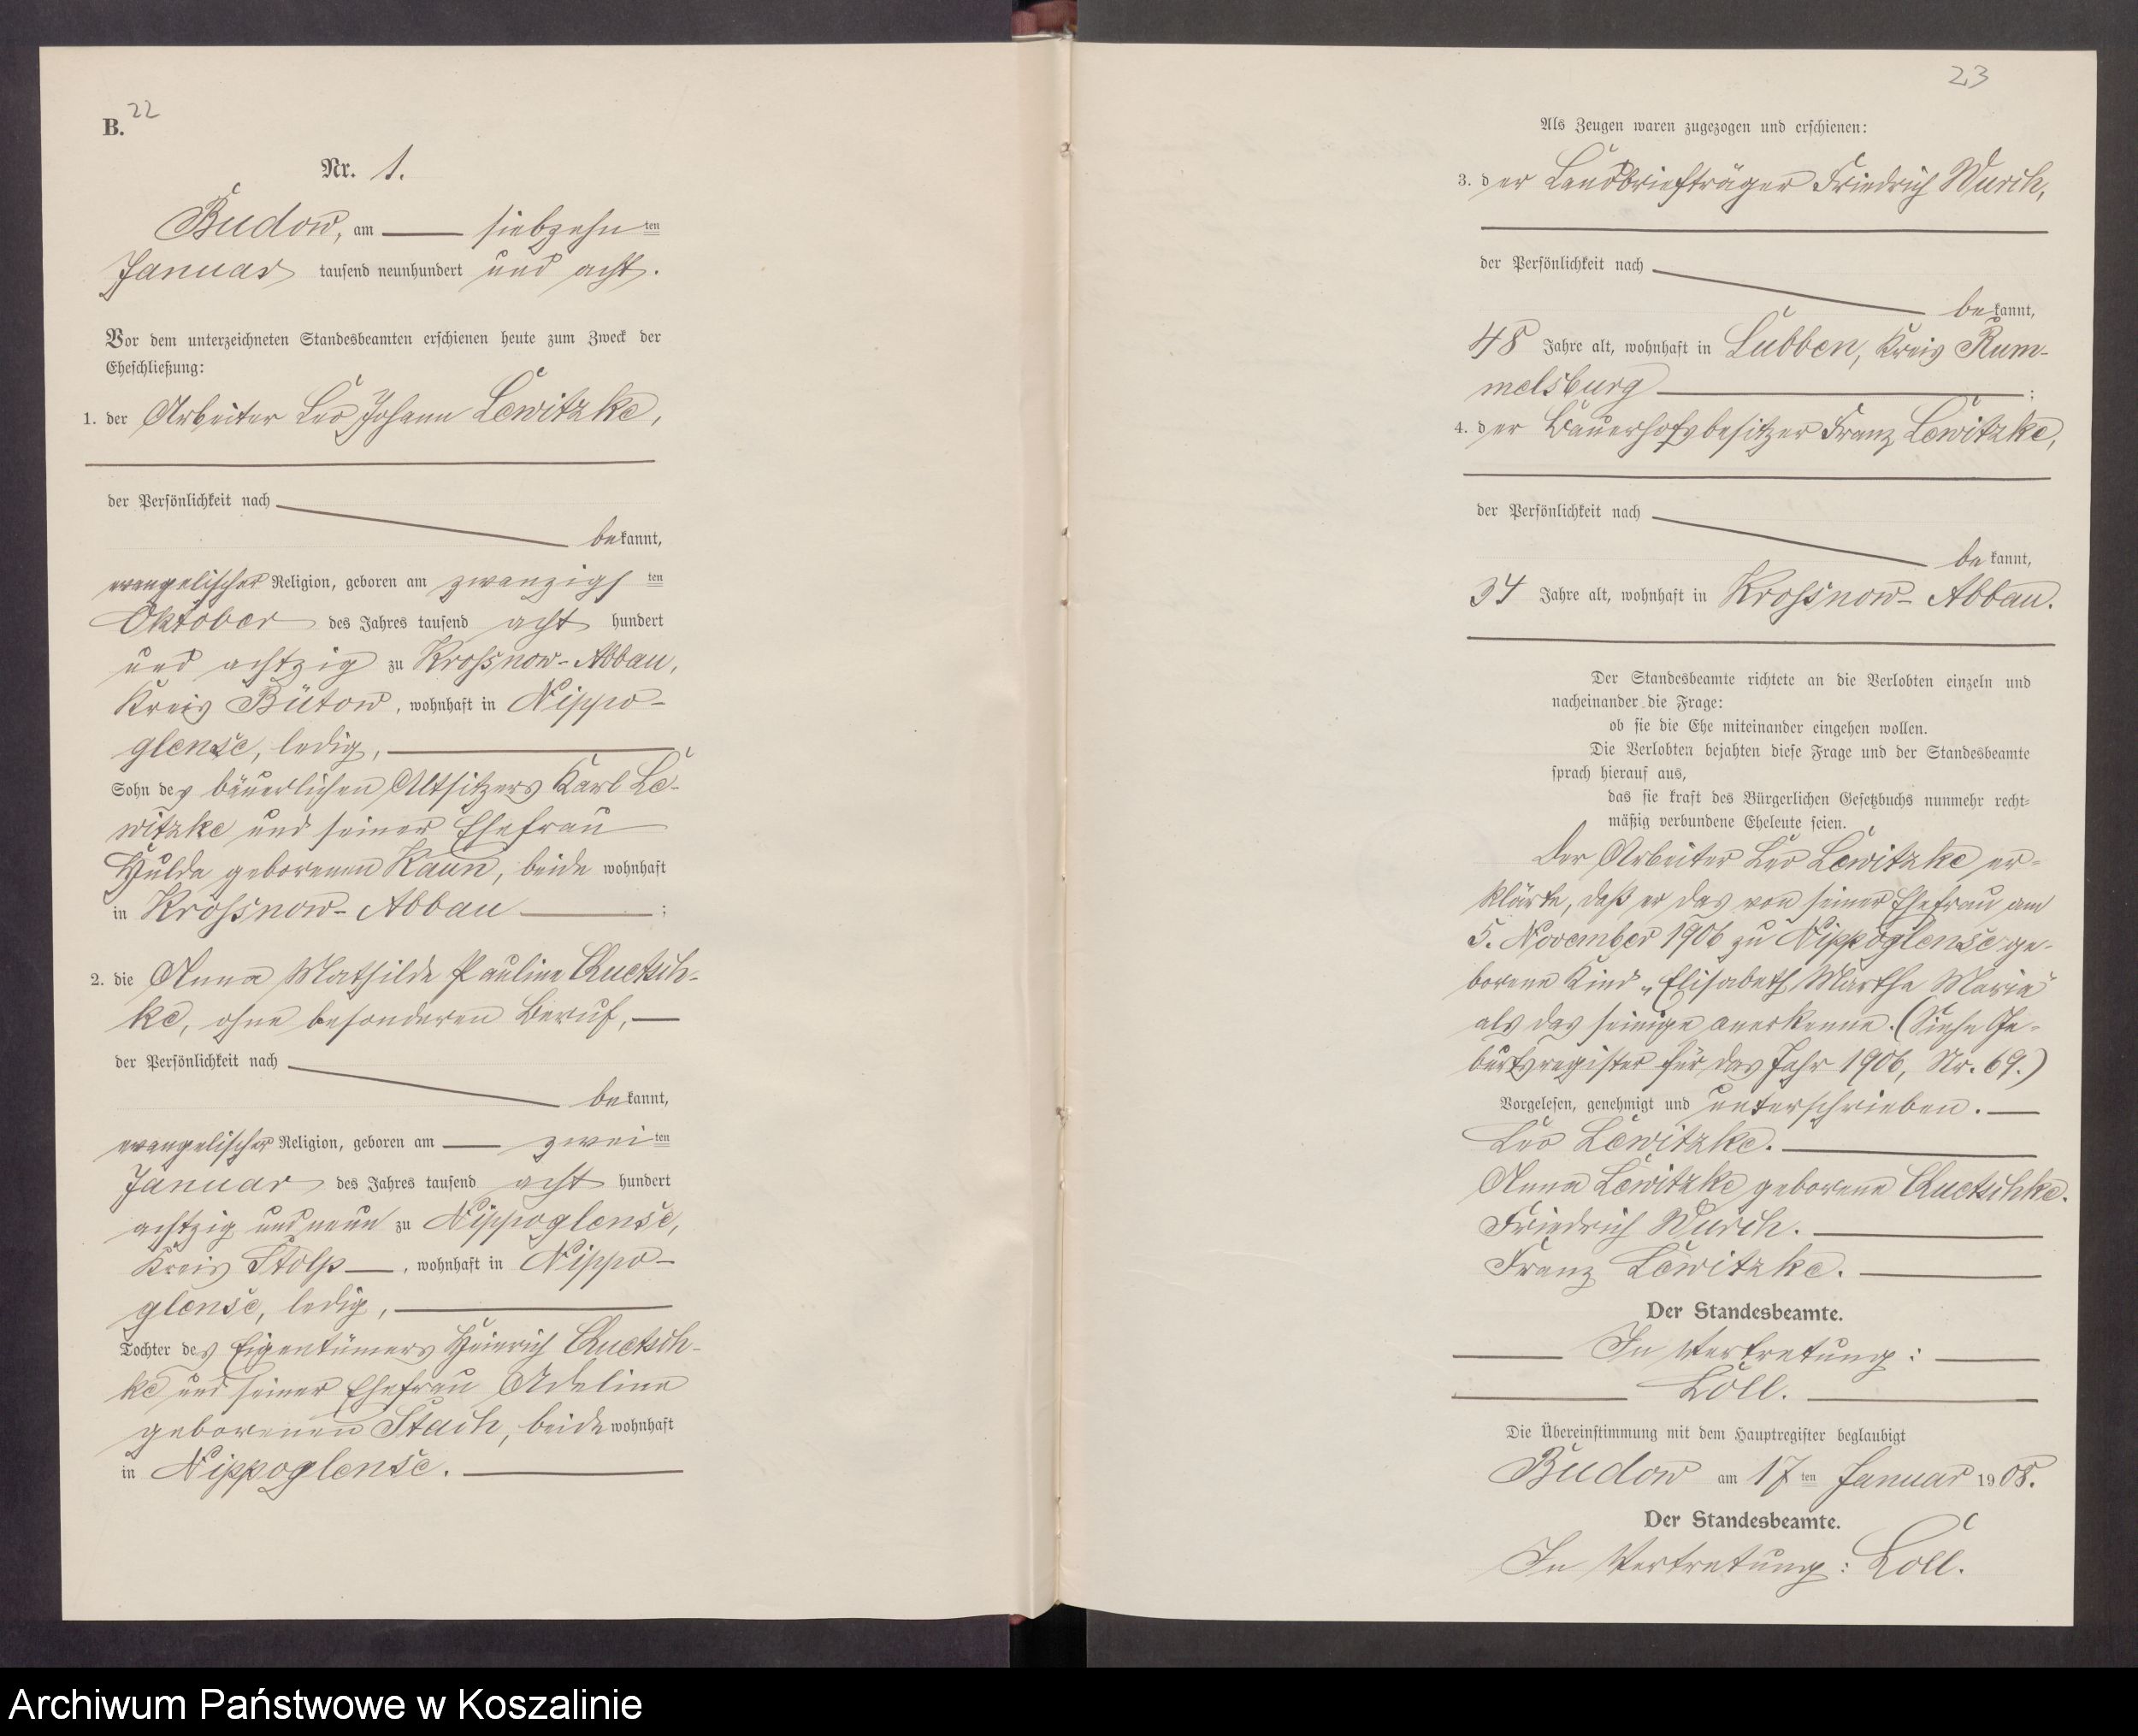 22
B.
Nr. 1.
Budow, am siebzehn ten
Januar tausend neunhundert und acht.
Vor dem unterzeichneten Standesbeamten erschienen heute zum Zweck der
Eheschließung:
1. der Arbeiter Leo Johann Lewitzke,
der Persönlichkeit nach
bekannt,
evangelischer Religion, geboren am zwanzigs ten
Oktober des Jahres tausend acht hundert
und achtzig zu Krossnow-Abbau,
Kreis Bütow, wohnhaft in Nippo-
glense, ledig,
Sohn des bäuerlichen Altsitzers Karl Le-
witzke und seiner Ehefrau
Hulda geborenen Kaun, beide wohnhaft
in Krossnow-Abbau ;
2. die Anna Mathilde Pauline Quetsch-
ke, ohne besonderen Beruf,
der Persönlichkeit nach
bekannt,
evangelischer Religion, geboren am zwei ten
Januar des Jahres tausend acht hundert
achtzig und neun zu Nippoglense,
Kreis Stolp, wohnhaft in Nippo-
glense, ledig,
Tochter des Eigentümers Heinrich Quetsch-
ke und seiner Ehefrau Adeline
geborenen Stach, beide wohnhaft
in Nippoglense.
23
Als Zeugen waren zugezogen und erschienen:
3. der Landbriefträger Friedrich Wurch,
der Persönlichkeit nach
bekannt,
48 Jahre alt, wohnhaft in Lubben, Kreis Rum-
melsburg ;
4. der Bauerhofsbesitzer Franz Lewitzke,
der Persönlichkeit nach
bekannt,
34 Jahre alt, wohnhaft in Krossnow-Abbau.
Der Standesbeamte richtete an die Verlobten einzeln und
nacheinander die Frage:
ob sie die Ehe miteinander eingehen wollen.
Die Verlobten bejahten diese Frage und der Standesbeamte
sprach hierauf aus,
das sie kraft des Bürgerlichen Gesetzbuchs nunmehr recht-
mäßig verbundene Eheleute seien.
Der Arbeiter Leo Lewitzke er-
klärte, daß er das von seiner Ehefrau am
5. November 1906 zu Nippoglense ge-
borene Kind „Elisabeth Martha Marie"
als das seinige anerkenne. (Siehe Ge-
burtsregister für das Jahr 1906, Nr. 69.)
Vorgelesen, genehmigt und unterschrieben.
Leo Lewitzke.
Anna Lewitzke geborene Quetschke.
Friedrich Wurch.
Franz Lewitzke.
Der Standesbeamte.
In Vertretung:
Loll.
Die Übereinstimmung mit dem Hauptregister beglaubigt
Budow am 17 ten Januar 1908.
Der Standesbeamte.
In Vertretung: Loll.
Archiwum Państwowe w Koszalinie